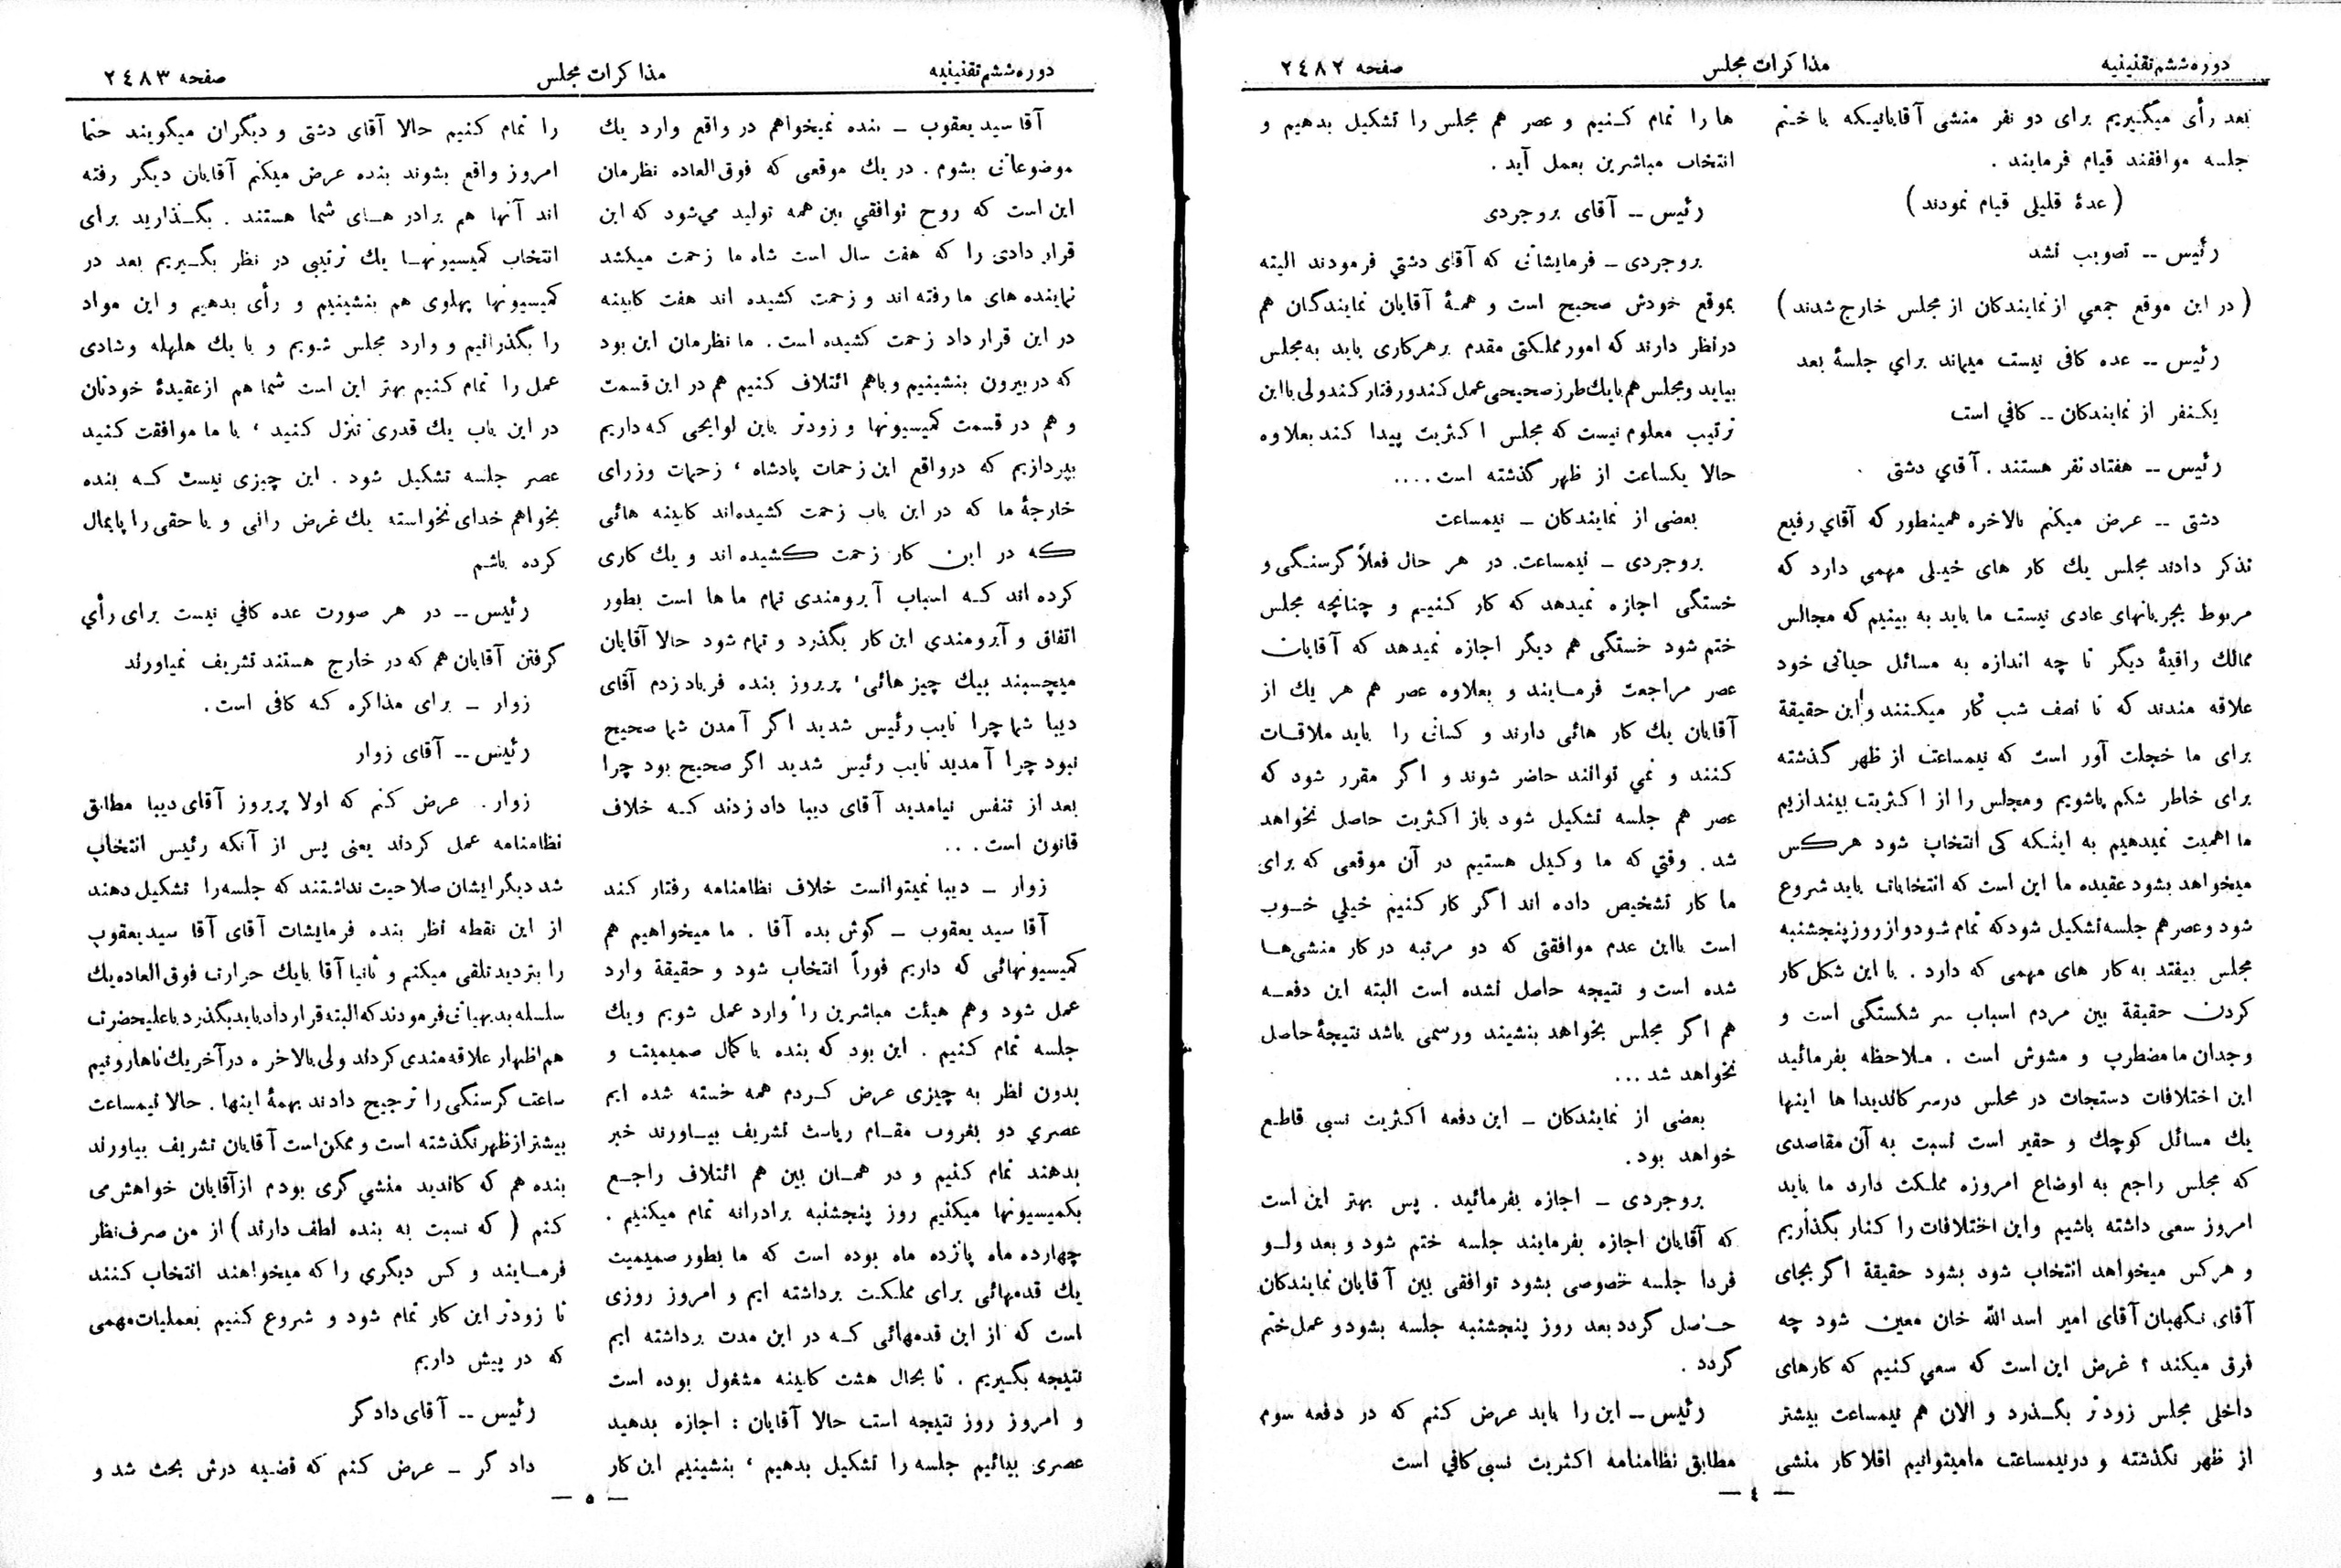 دوره ششم تقنینیه
مذاکرات مجلس
صفحه ۲۴۸۲
بعد رأی میگیریم برای دو نفر منشی آقایانیکه با ختم
جلسه موافقند قیام فرمایند .
(عدهٔ قلیلی قیام نمودند)
رئیس -- تصویب نشد
(در این موقع جمعي از نمایندکان از مجلس خارج شدند)
رئیس -- عده کافی نیست میماند براي جلسهٔ بعد
یکنفر از نمایندکان -- کافي است
رئیس -- هفتاد نفر هستند . آقاي دشتی .
دشتی -- عرض میکنم بالاخره همینطور که آقاي رفیع
تذکر دادند مجلس یك کار های خیلی مهمی دارد که
مربوط بجریانهای عادی نیست ما باید به بینیم که مجالس
ممالك راقیهٔ دیگر تا چه اندازه به مسائل حیاتی خود
علاقه مندند که تا نصف شب کار میکنند و این حقیقة
برای ما خجلت آور است که نیمساعت از ظهر گذشته
برای خاطر شکم پاشویم و مجلس را از اکثریت بیندازیم
ما اهمیت نمیدهیم به اینکه کی انتخاب شود هرکس
میخواهد بشود عقیده ما این است که انتخابات باید شروع
شود و عصر هم جلسه تشکیل شود که تمام شود و از روز پنجشنبه
مجلس بیفتد به کار های مهمی که دارد . با این شکل کار
کردن حقیقة بین مردم اسباب سر شکستگی است و
وجدان ما مضطرب و مشوش است . ملاحظه بفرمائید
این اختلافات دستجات در مجلس درسر کاندیدا ها اینها
یك مسائل کوچك و حقیر است نسبت به آن مقاصدی
که مجلس راجع به اوضاع امروزه مملکت دارد ما باید
امروز سعی داشته باشیم و این اختلافات را کنار بگذاریم
و هر کس میخواهد انتخاب شود بشود حقیقة اگر بجای
آقای نگهبان آقای امیر اسد الله خان معین شود چه
فرق میکند ؟ غرض این است که سعي کنیم که کارهای
داخلی مجلس زودتر بگذرد و الان هم نیمساعت بیشتر
از ظهر نگذشته و در نیمساعت ما میتوانیم اقلا کار منشی
ها را تمام کنیم و عصر هم مجلس را تشکیل بدهیم و
انتخاب مباشرین بعمل آید .
رئیس -- آقای بروجردی
بروجردی - فرمایشاتی که آقای دشتي فرمودند البته
بموقع خودش صحیح است و همهٔ آقایان نمایندگان هم
درنظر دارند که امور مملکتی مقدم بر هر کاری باید به مجلس
بیاید و مجلس هم با یك طرز صحیحی عمل کند و رفتار کند ولی با این
ترتیب معلوم نیست که مجلس اکثریت پیدا کند بعلاوه
حالا یکساعت از ظهر گذشته است ....
بعضی از نمایندکان - نیمساعت
بروجردی - نیمساعت. در هر حال فعلاً گرسنگی و
خستگی اجازه نمیدهد که کار کنیم و چنانچه مجلس
ختم شود خستگی هم دیگر اجازه نمیدهد که آقایان
عصر مراجعت فرمایند و بعلاوه عصر هم هر یك از
آقایان یك کار هائی دارند و کسانی را باید ملاقات
کنند و نمي توانند حاضر شوند و اگر مقرر شود که
عصر هم جلسه تشکیل شود باز اکثریت حاصل نخواهد
شد . وقتي که ما وکیل هستیم در آن موقعی که برای
ما کار تشخیص داده اند اگر کار کنیم خیلي خوب
است بااین عدم موافقتی که دو مرتبه در کار منشی‌ها
شده است و نتیجه حاصل نشده است البته این دفعه
هم اگر مجلس بخواهد بنشیند و رسمی باشد نتیجهٔ حاصل
نخواهد شد ...
بعضی از نمایندکان - این دفعه اکثریت نسبی قاطع
خواهد بود.
بروجردی - اجازه بفرمائید . پس بهتر این است
که آقایان اجازه بفرمایند جلسه ختم شود و بعد ولو
فردا جلسه خصوصی بشود توافقی بین آقایان نمایندکان
حاصل گردد بعد روز پنجشنبه جلسه بشود و عمل ختم
گردد .
رئیس - این را باید عرض کنم که در دفعه سوم
مطابق نظامنامه اکثریت نسبی کافي است
— ٤ —
دوره ششم تقنینیه
مذاکرات مجلس
صفحه ۲۴۸۳
آقا سید یعقوب - بنده نمیخواهم در واقع وارد یك
موضوعاتی بشوم . در یك موقعی که فوق العاده نظرمان
این است که روح توافقي بین همه تولید می‌شود که این
قرار دادی را که هفت سال است شاه ما زحمت میکشد
نماینده های ما رفته اند و زحمت کشیده اند هفت کابینه
در این قرار داد زحمت کشیده است . ما نظرمان این بود
که در بیرون بنشینیم و باهم ائتلاف کنیم هم در این قسمت
و هم در قسمت کمیسیونها و زودتر باین لوایحی که داریم
بپردازیم که درواقع این زحمات پادشاه ، زحمات وزرای
خارجهٔ ما که در این باب زحمت کشیده‌اند کابینه هائی
که در این کار زحمت کشیده اند و یك کاری
کرده اند که اسباب آبرومندی تمام ماها است بطور
اتفاق و آبرومندی این کار بگذرد و تمام شود حالا آقایان
میچسبند بیك چیز هائی، پریروز بنده فریاد زدم آقای
دیبا شما چرا نایب رئیس شدید اگر آمدن شما صحیح
نبود چرا آمدید نایب رئیس شدید اگر صحیح بود چرا
بعد از تنفس نیامدید آقای دیبا داد زدند که خلاف
قانون است ...
زوار - دیبا نمیتوانست خلاف نظامنامه رفتار کند
آقا سید یعقوب - گوش بده آقا . ما میخواهیم هم
کمیسیونهائی که داریم فوراً انتخاب شود و حقیقة وارد
عمل شود وهم هیئت مباشرین را وارد عمل شویم ویك
جلسه تمام کنیم . این بود که بنده با کمال صمیمیت و
بدون نظر به چیزی عرض کردم همه خسته شده ایم
عصري دو بغروب مقام ریاست تشریف بیاورند خبر
بدهند تمام کنیم و در همان بین هم ائتلاف راجع
بکمیسیونها میکنیم روز پنجشنبه برادرانه تمام میکنیم .
چهارده ماه پانزده ماه بوده است که ما بطور صمیمیت
یك قدمهائی برای مملکت برداشته ایم و امروز روزی
است که از این قدمهائی که در این مدت برداشته ایم
نتیجه بگیریم . تا بحال هشت کابینه مشغول بوده است
و امروز روز نتیجه است حالا آقایان : اجازه بدهید
عصری بیائیم جلسه را تشکیل بدهیم ، بنشینیم این کار
را تمام کنیم حالا آقای دشتی و دیگران میگویند حتما
امروز واقع بشوند بنده عرض میکنم آقایان دیگر رفته
اند آنها هم برادر های شما هستند . بگذارید برای
انتخاب کمیسیونها یك ترتیبی در نظر بگیریم بعد در
کمیسیونها پهلوی هم بنشینیم و رأی بدهیم و این مواد
را بگذرانیم و وارد مجلس شویم و با یك هلهله وشادی
عمل را تمام کنیم بهتر این است شما هم از عقیدهٔ خودتان
در این باب یك قدری تنزل کنید ، با ما موافقت کنید
عصر جلسه تشکیل شود . این چیزی نیست که بنده
بخواهم خدای نخواسته یك غرض رانی و یا حقی را پایمال
کرده باشم
رئیس -- در هر صورت عده کافي نیست برای رأي
گرفتن آقایان هم که در خارج هستند تشریف نمیاورند
زوار - برای مذاکره که کافی است .
رئیس -- آقای زوار
زوار . عرض کنم که اولا پریروز آقای دیبا مطابق
نظامنامه عمل کردند یعنی پس از آنکه رئیس انتخاب
شد دیگر ایشان صلاحیت نداشتند که جلسه را تشکیل دهند
از این نقطه نظر بنده فرمایشات آقای آقا سید یعقوب
را بتردید تلقی میکنم و ثانیا آقا بایك حرارت فوق العاده یك
سلسله بدیهیاتی فرمودند که البته قرار داد باید بگذرد باعلیحضرت
هم اظهار علاقه مندی کردند ولی بالاخره در آخر یك ناهار و نیم
ساعت گرسنگی را ترجیح دادند بهمهٔ اینها . حالا نیمساعت
بیشتر از ظهر نگذشته است و ممکن است آقایان تشریف بیاورند
بنده هم که کاندید منشي گری بودم از آقایان خواهش می
کنم ( که نسبت به بنده لطف دارند ) از من صرف نظر
فرمایند و کس دیگري را که میخواهند انتخاب کنند
تا زودتر این کار تمام شود و شروع کنیم بعملیات مهمی
که در پیش داریم
رئیس -- آقای دادگر
دادگر - عرض کنم که قضیه درش بحث شد و
— ٥ —